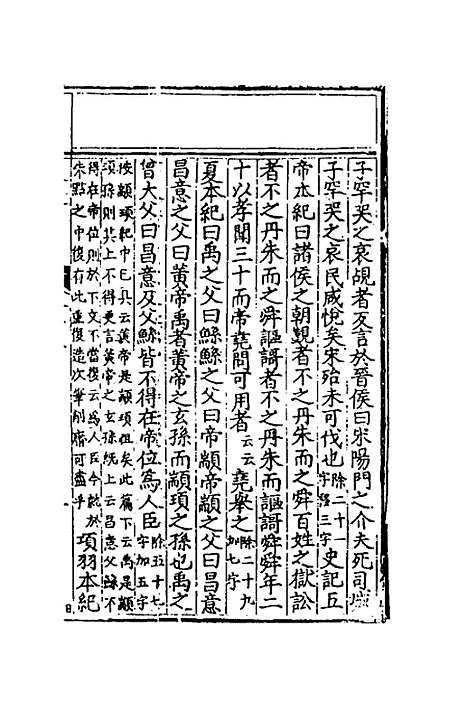 子罕哭之哀覘者反言於晉侯曰宋陽門之介夫死司城
子罕哭之哀民咸悅矣宋殆未可伐也除二十一字加三字史記五
帝本紀曰諸侯之朝覲者不之丹朱而之舜百姓之獄訟
者不之丹朱而之舜謳謌者不之丹朱而謳謌舜舜年二
十以孝聞三十而帝堯問可用者云云堯舉之除二十九字加七字
夏本紀曰禹之父曰鯀鯀之父曰帝顓帝顓之父曰昌意
昌意之父曰黃帝禹者黃帝之玄孫而顓頊之孫也禹之
曾大父曰昌意及父鯀皆不得在帝位爲人臣除五十七字加五字
按顓頊紀中已具云黃帝是顓頊祖矣此篇下云禹是顓
頊孫則其上不得更言黃帝之玄孫既上云昌意父鯀不
得在帝位則於下文不當復云爲人臣今就於
朱點之中復有此重復造次筆削庶可盡乎項羽本紀